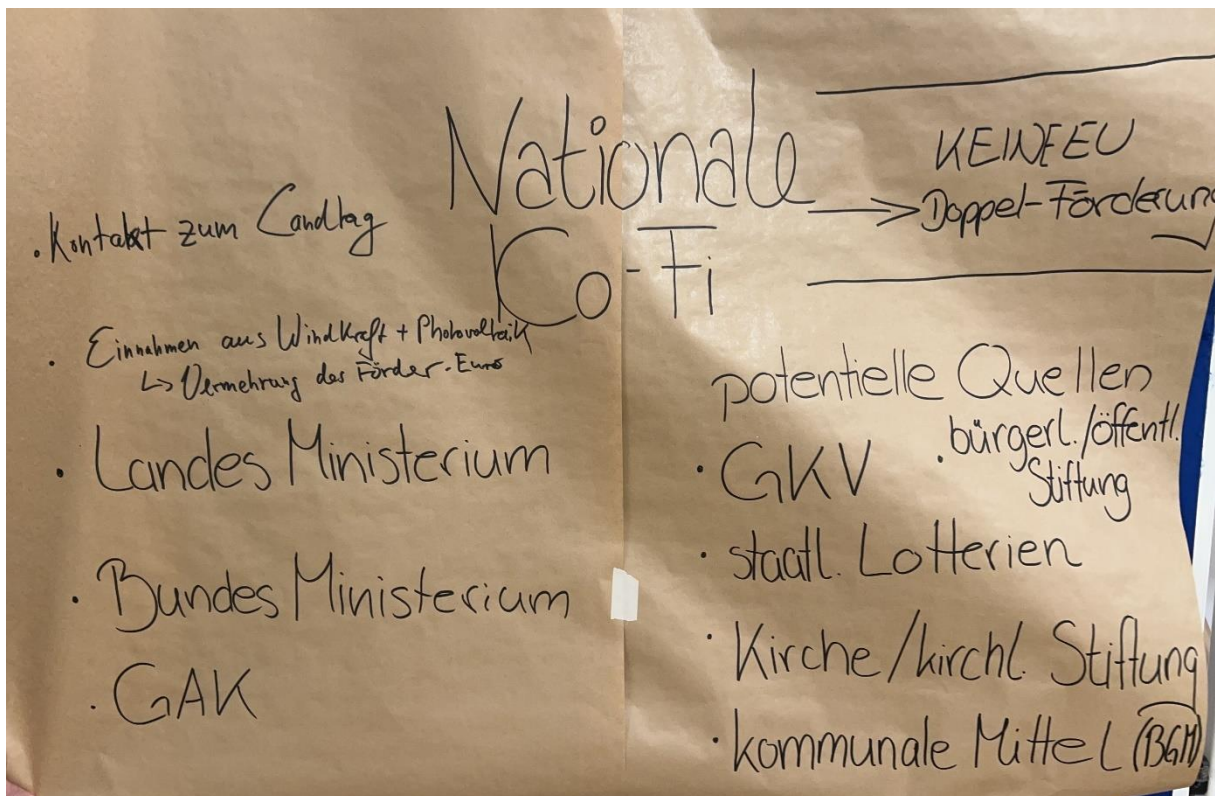 Nationale
Co-Fi
KEINE EU
→ Doppel-Förderung
· Kontakt zum Landtag
· Einnahmen aus Windkraft + Photovoltaik
↳ Vermehrung des Förder-Euro
· Landes Ministerium
· Bundes Ministerium
· GAK
potentielle Quellen
· GKV
· bürgerl./öffentl.
Stiftung
· staatl. Lotterien
· Kirche/kirchl. Stiftung
· kommunale Mittel (BGM)